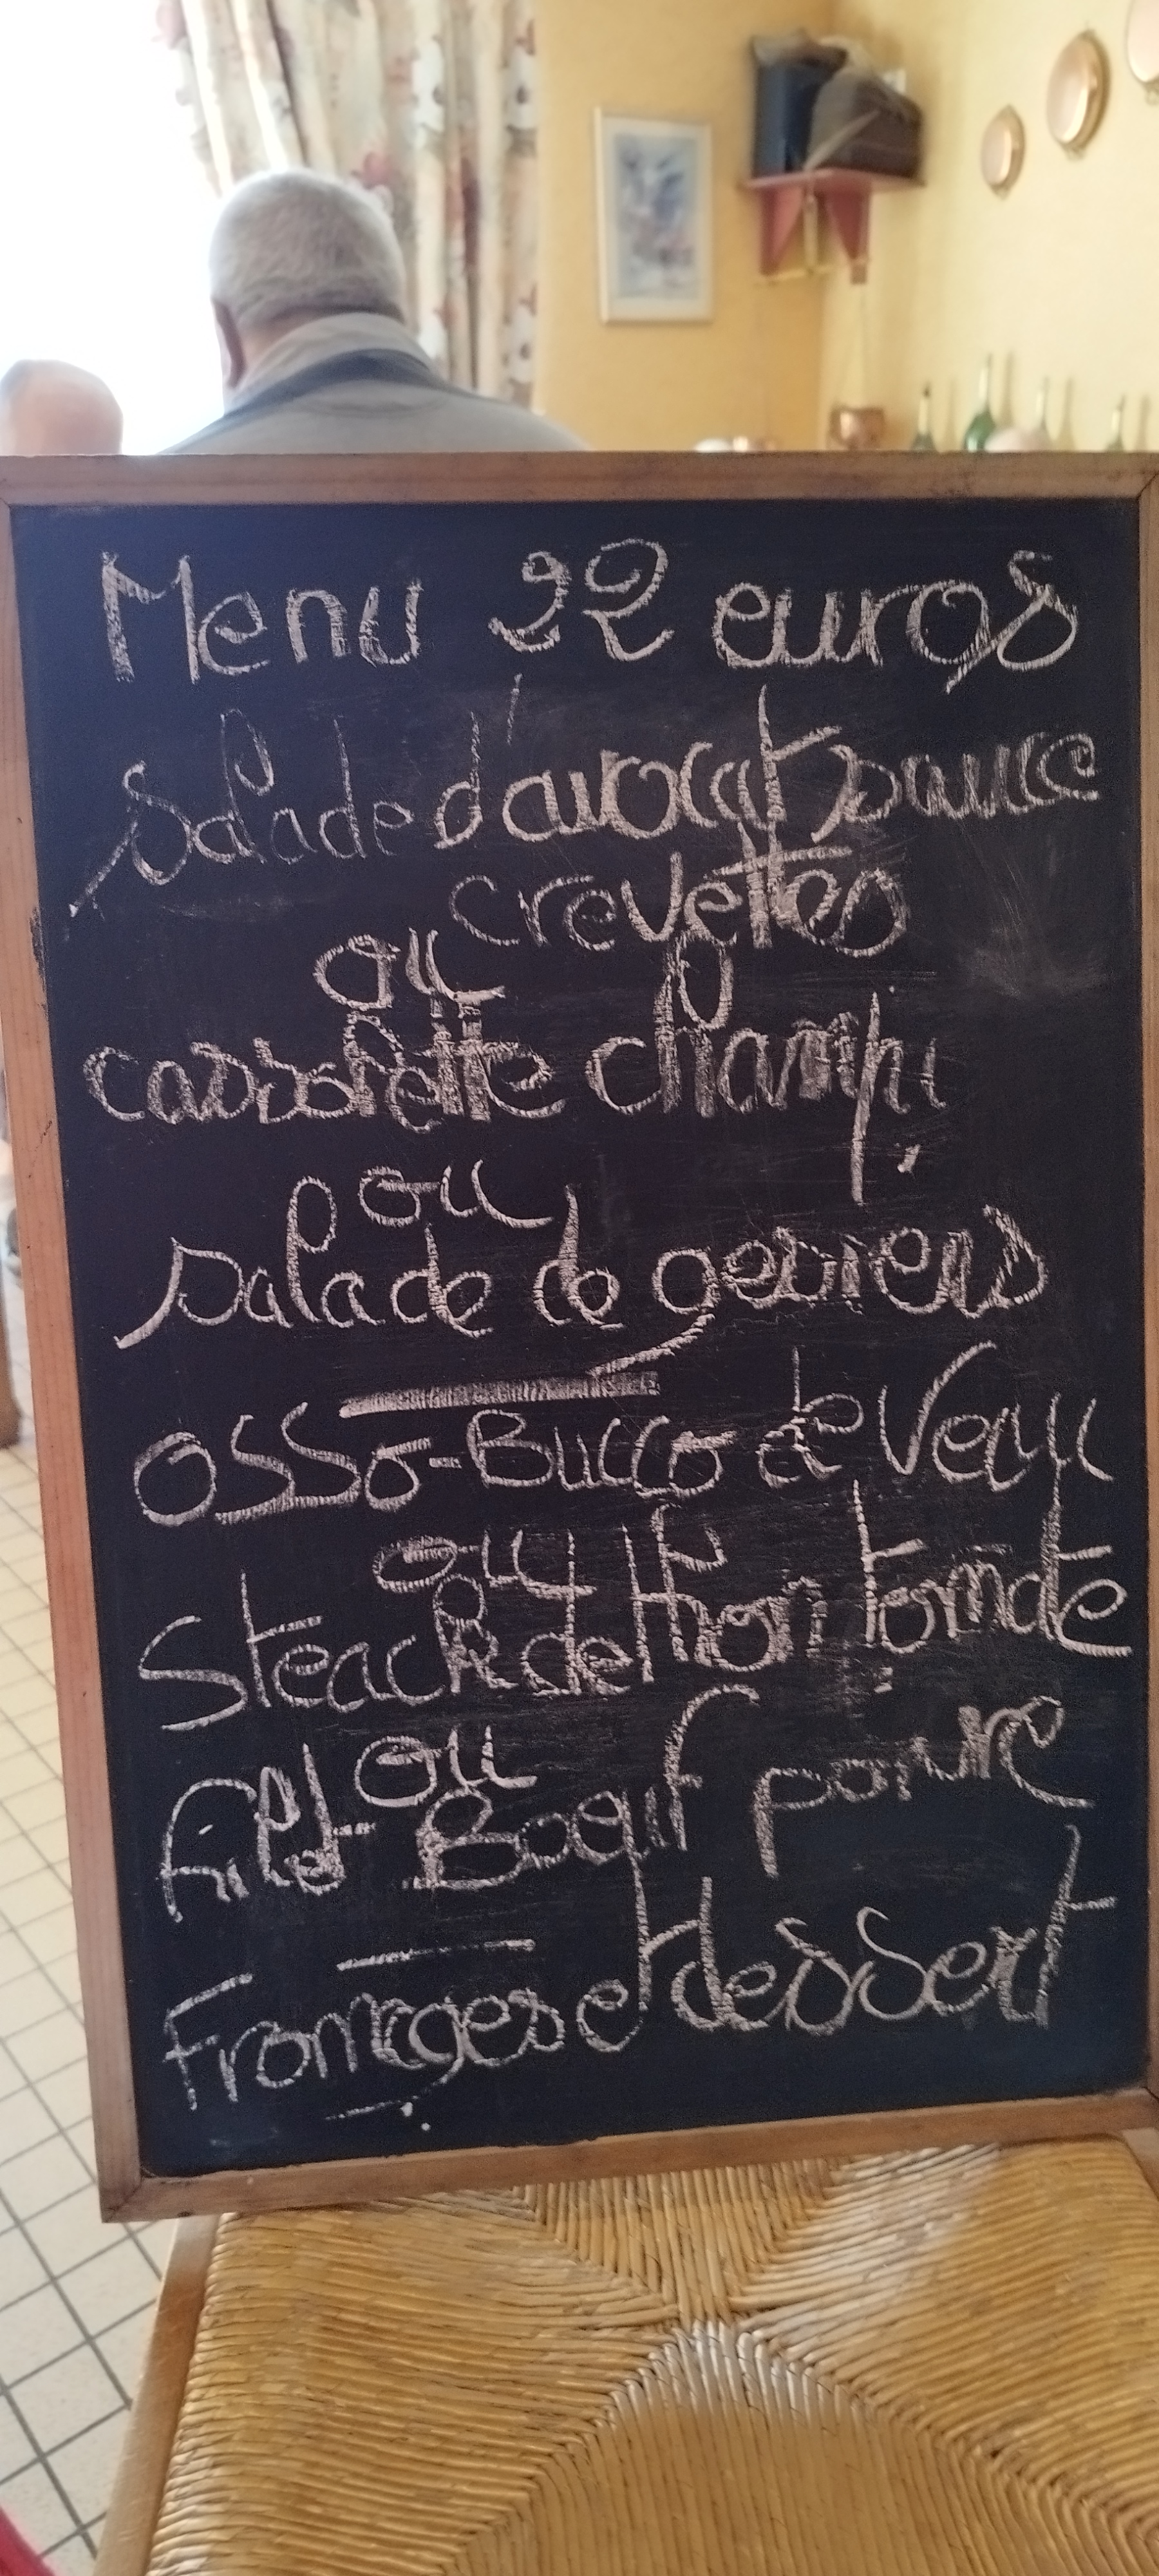 Menu 22 euros
Salade d'avocat sauce
crevettes
ou
cassolette champi
ou
salade de gesiers
OSSO-Bucco de Veau
ou
Steack de thon tomate
ou
filet Boeuf poivre
Fromages et dessert